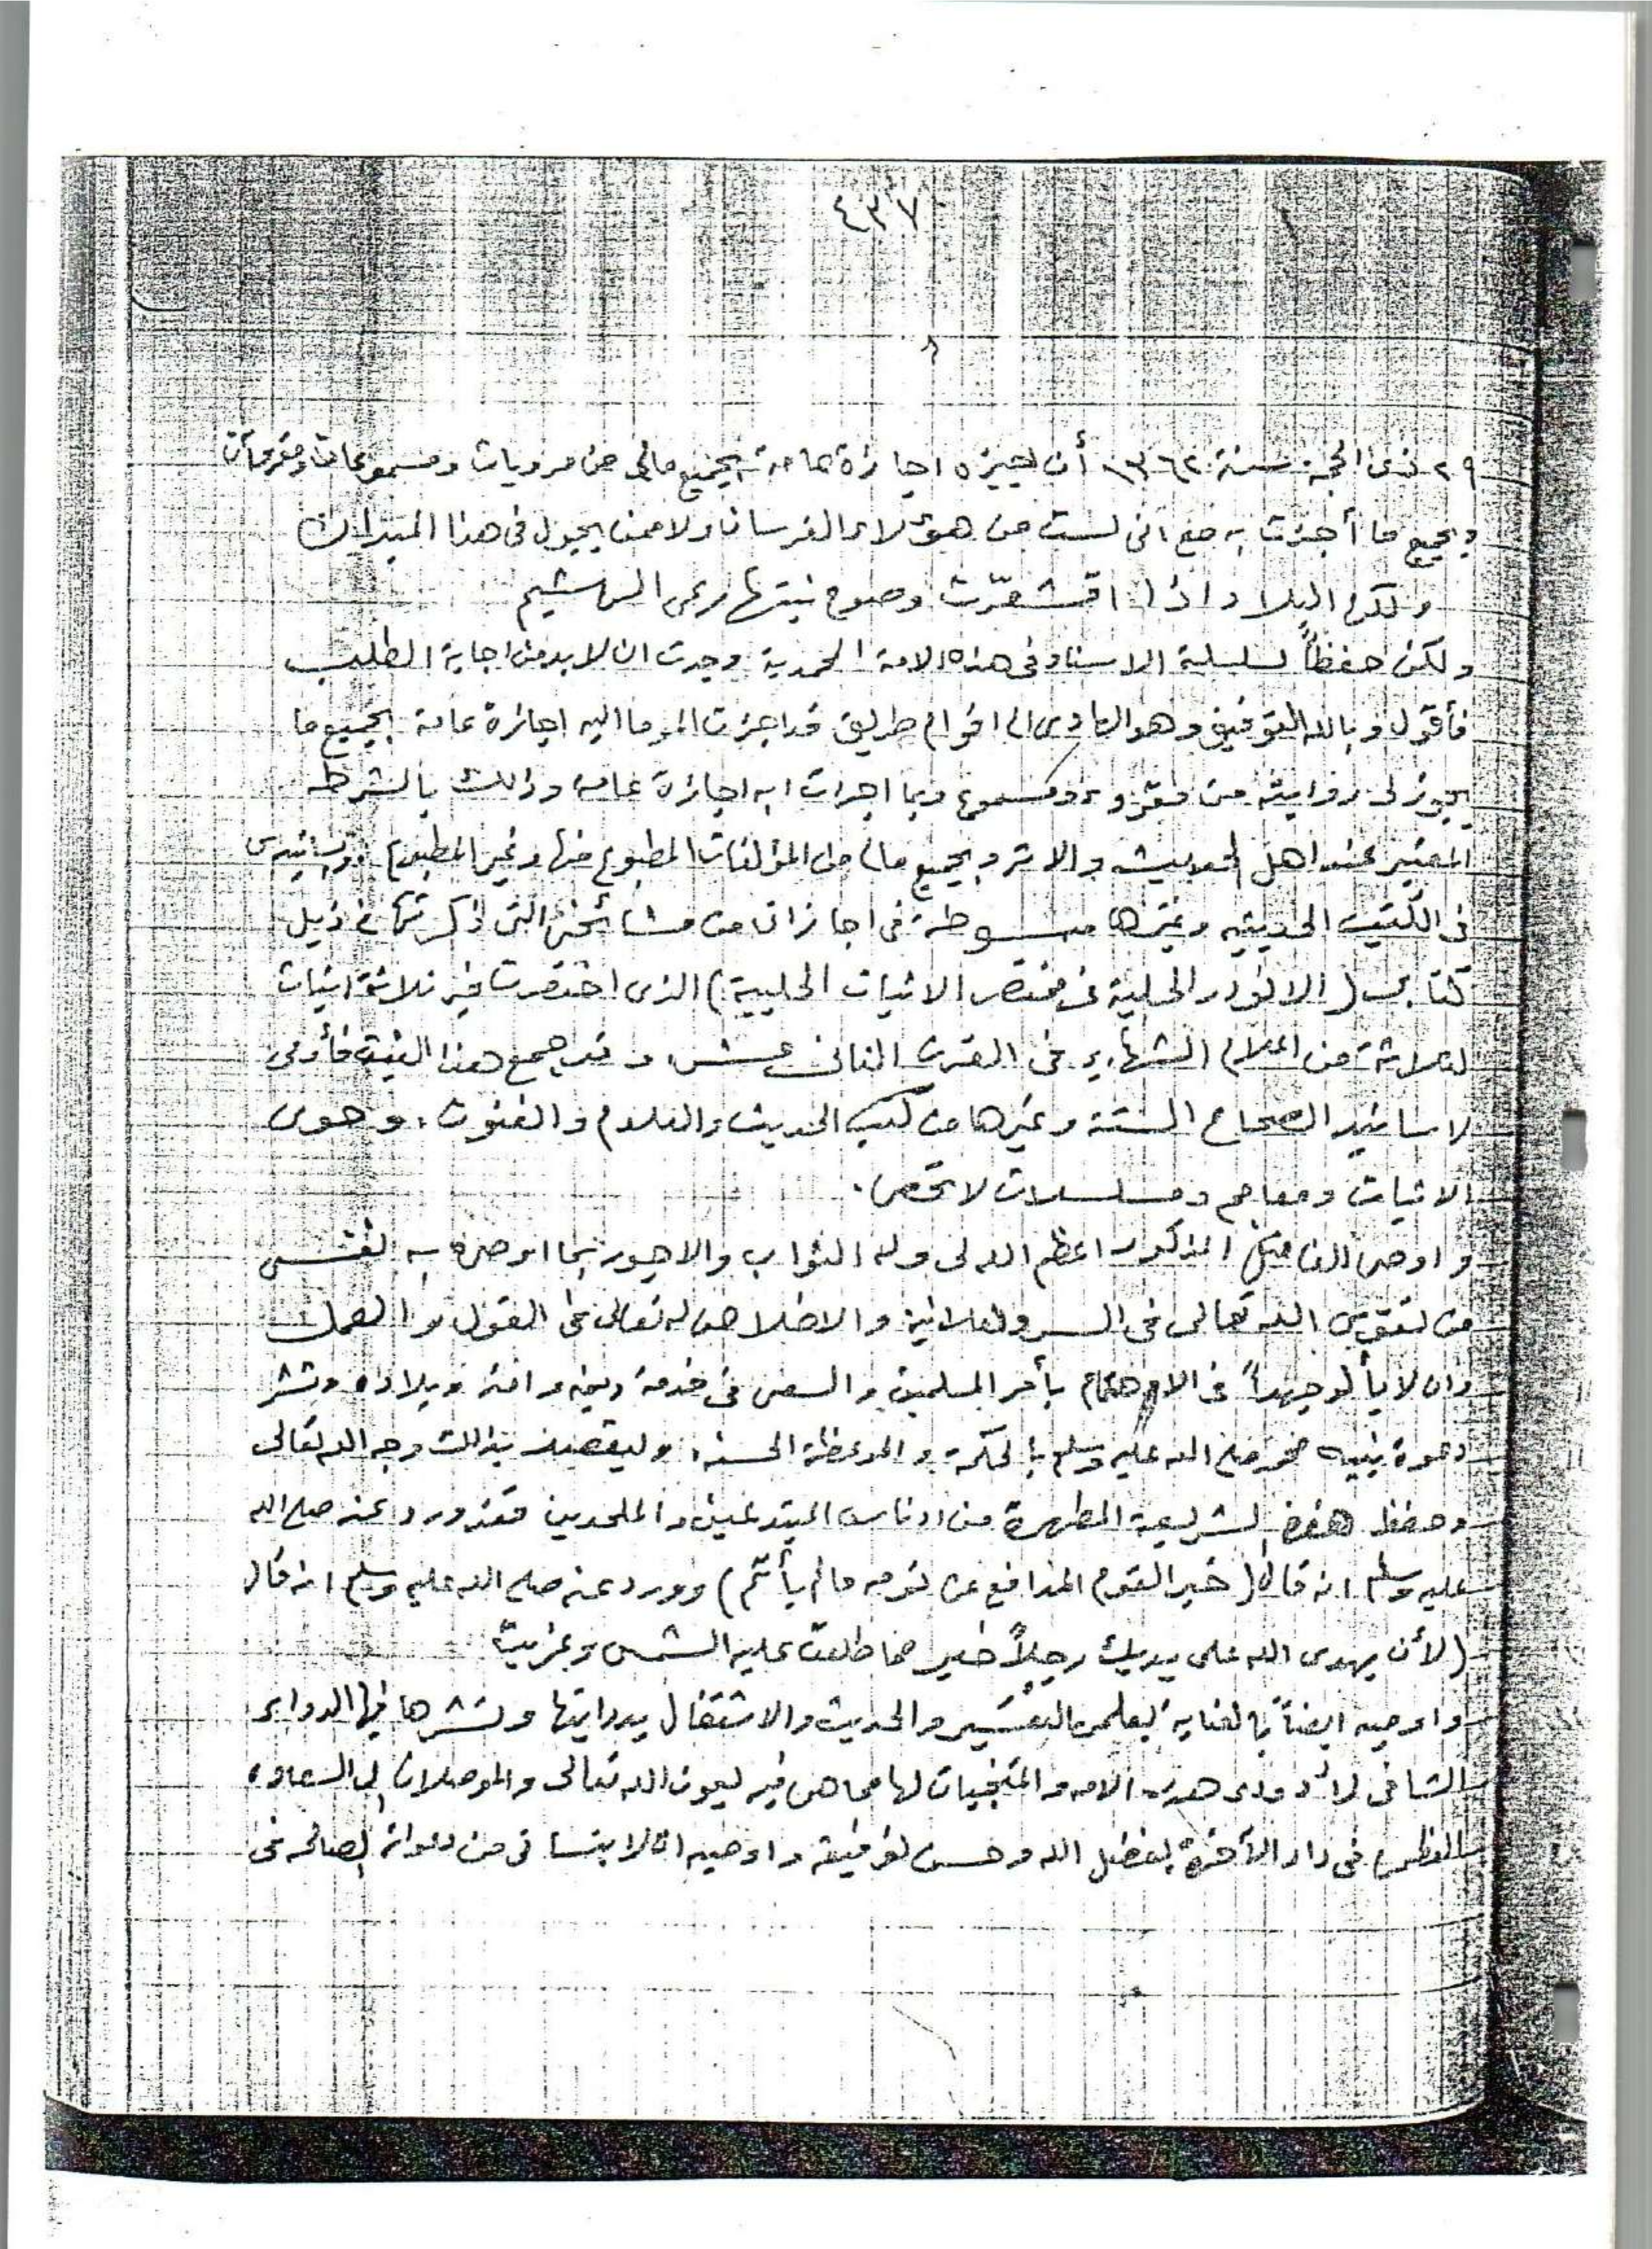 ٤٣٧
٨
٢٩ ذى الحجة سنة ١٣٦٢ أن اجيزه اجازة عامة بجميع مالى من مرويات ومسموعات ومقروءآت
وبجميع ما أجزت به مع انى لست من هؤلاء الفرسان ولا ممن يجول فى هذا الميدان
ولكن البلاد اذا اقشعرّت وصوح نبتها رعى الهشيم
ولكن حفظاً لسلسلة الاسناد فى هذه الامة المحمدية وجدت ان لا بد من اجابة الطلب
فأقول وبالله التوفيق وهو الهادى الى اقوام طريق قد اجزت المومأ اليه اجازة عامة بجميع ما
يجوز لى روايته من مقروء ومسموع وبما اجزت به اجازة عامة وذلك بالشرط
المعتبر عند اهل الحديث والاثر وبجميع مالى من المؤلفات المطبوع منها وغير المطبوع واسانيدى
فى الكتب الحديثيه وغيرها مبسوطة فى اجازاتى من مشائخى التى ذكرتها فى ذيل
كتابى (الانوار الجلية فى مختصر الاثبات الحلبية) الذى اختصرت فيه ثلاثة اثبات
لثلاثة من اعلام الشهباء فى القرن الثانى عشر، وقد جمع هذا الثبت فأوعى
لاسانيد الصحاح الستة وغيرها من كتب الحديث والعلوم والفنون، وحوى
الاثبات ومعاجم ومسلسلات لا تحصى.
واوصى الفاضل المذكور اعظم الله لى وله الثواب والاجور بما اوصى به نفسى
من تقوى الله تعالى فى السر والعلانية والاخلاص له تعالى فى القول والعمل
وان لا يألو جهداً فى الاهتمام بأمر المسلمين والسعى فى خدمة دينه وامته وبلاده ونشر
دعوة نبيه محمد صلى الله عليه وسلم بالحكمة والموعظة الحسنة، وليقصد بذلك وجه الله تعالى
وحفظ هذه الشريعة المطهرة من ادناس المبتدعين والملحدين فقد ورد عنه صلى الله
عليه وسلم انه قال (خير القوم المدافع عن قومه مالم يأثم) وورد عنه صلى الله عليه وسلم انه قال
(لأن يهدى الله على يديك رجلاً خير مما طلعت عليه الشمس وغربت
واوصيه ايضاً بالعناية بعلمى التفسير والحديث والاشتغال بدرايتها ونشرها فيها الدواء
الشافى لأدواء هذه الامه والمنجيات لها مما هى فيه بعون الله تعالى والموصلان الى السعادة
العظمى فى دار الآخرة بفضل الله وحسن توفيقه واوصيه ان لا ينسانى من دعواته الصالحه فى